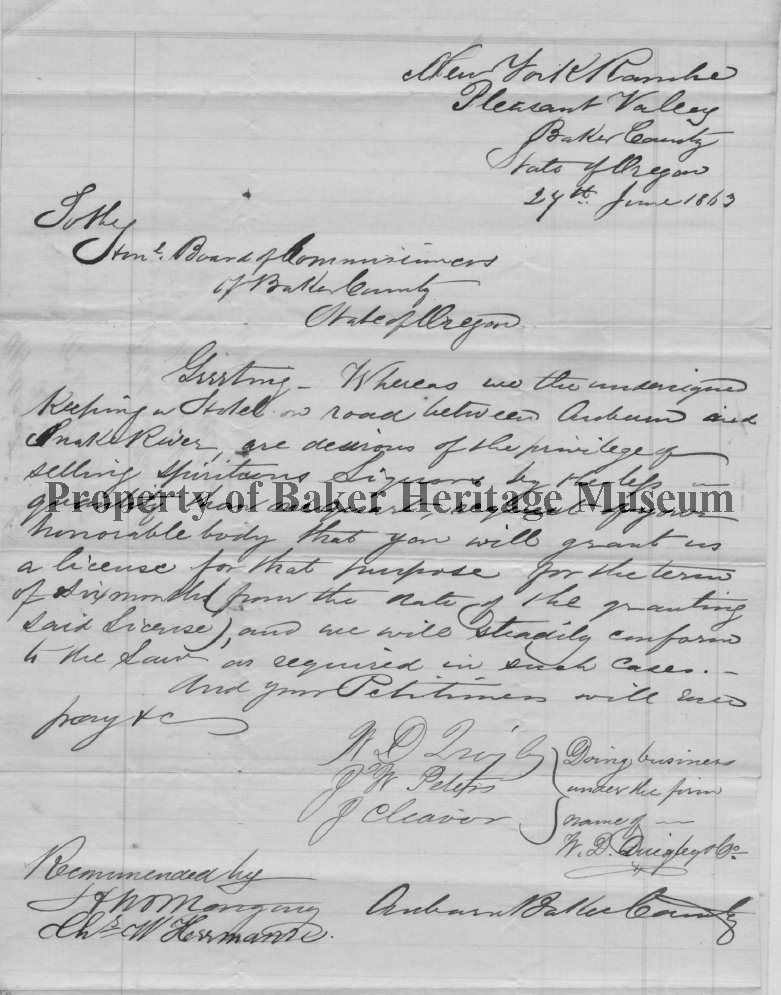 New York Ranche
Pleasant Valley
Baker County
State of Oregon
27th June 1863
To the
Honl. Board of Commissioners
of Baker County
State of Oregon.
Greeting - Whereas we the undersigned
keeping a Hotel on road between Auburn and
Snake River, are desirous of the privilege of
selling Spirituous Liquors by the less
quantity than
Property of Baker Heritage Museum
honorable body that you will grant us
a license for that purpose for the term
of six months (from the date of the granting
said License), and we will steadily conform
to the Law as required in such cases. -
And your Petitioners will ever
pray &c
W D Quigley
J W Peters
J Cleaver
Doing business
under the firm
name of
W. D. Quigley & Co.
Recommended by
Auburn Baker County
Chs. W Herrmann.